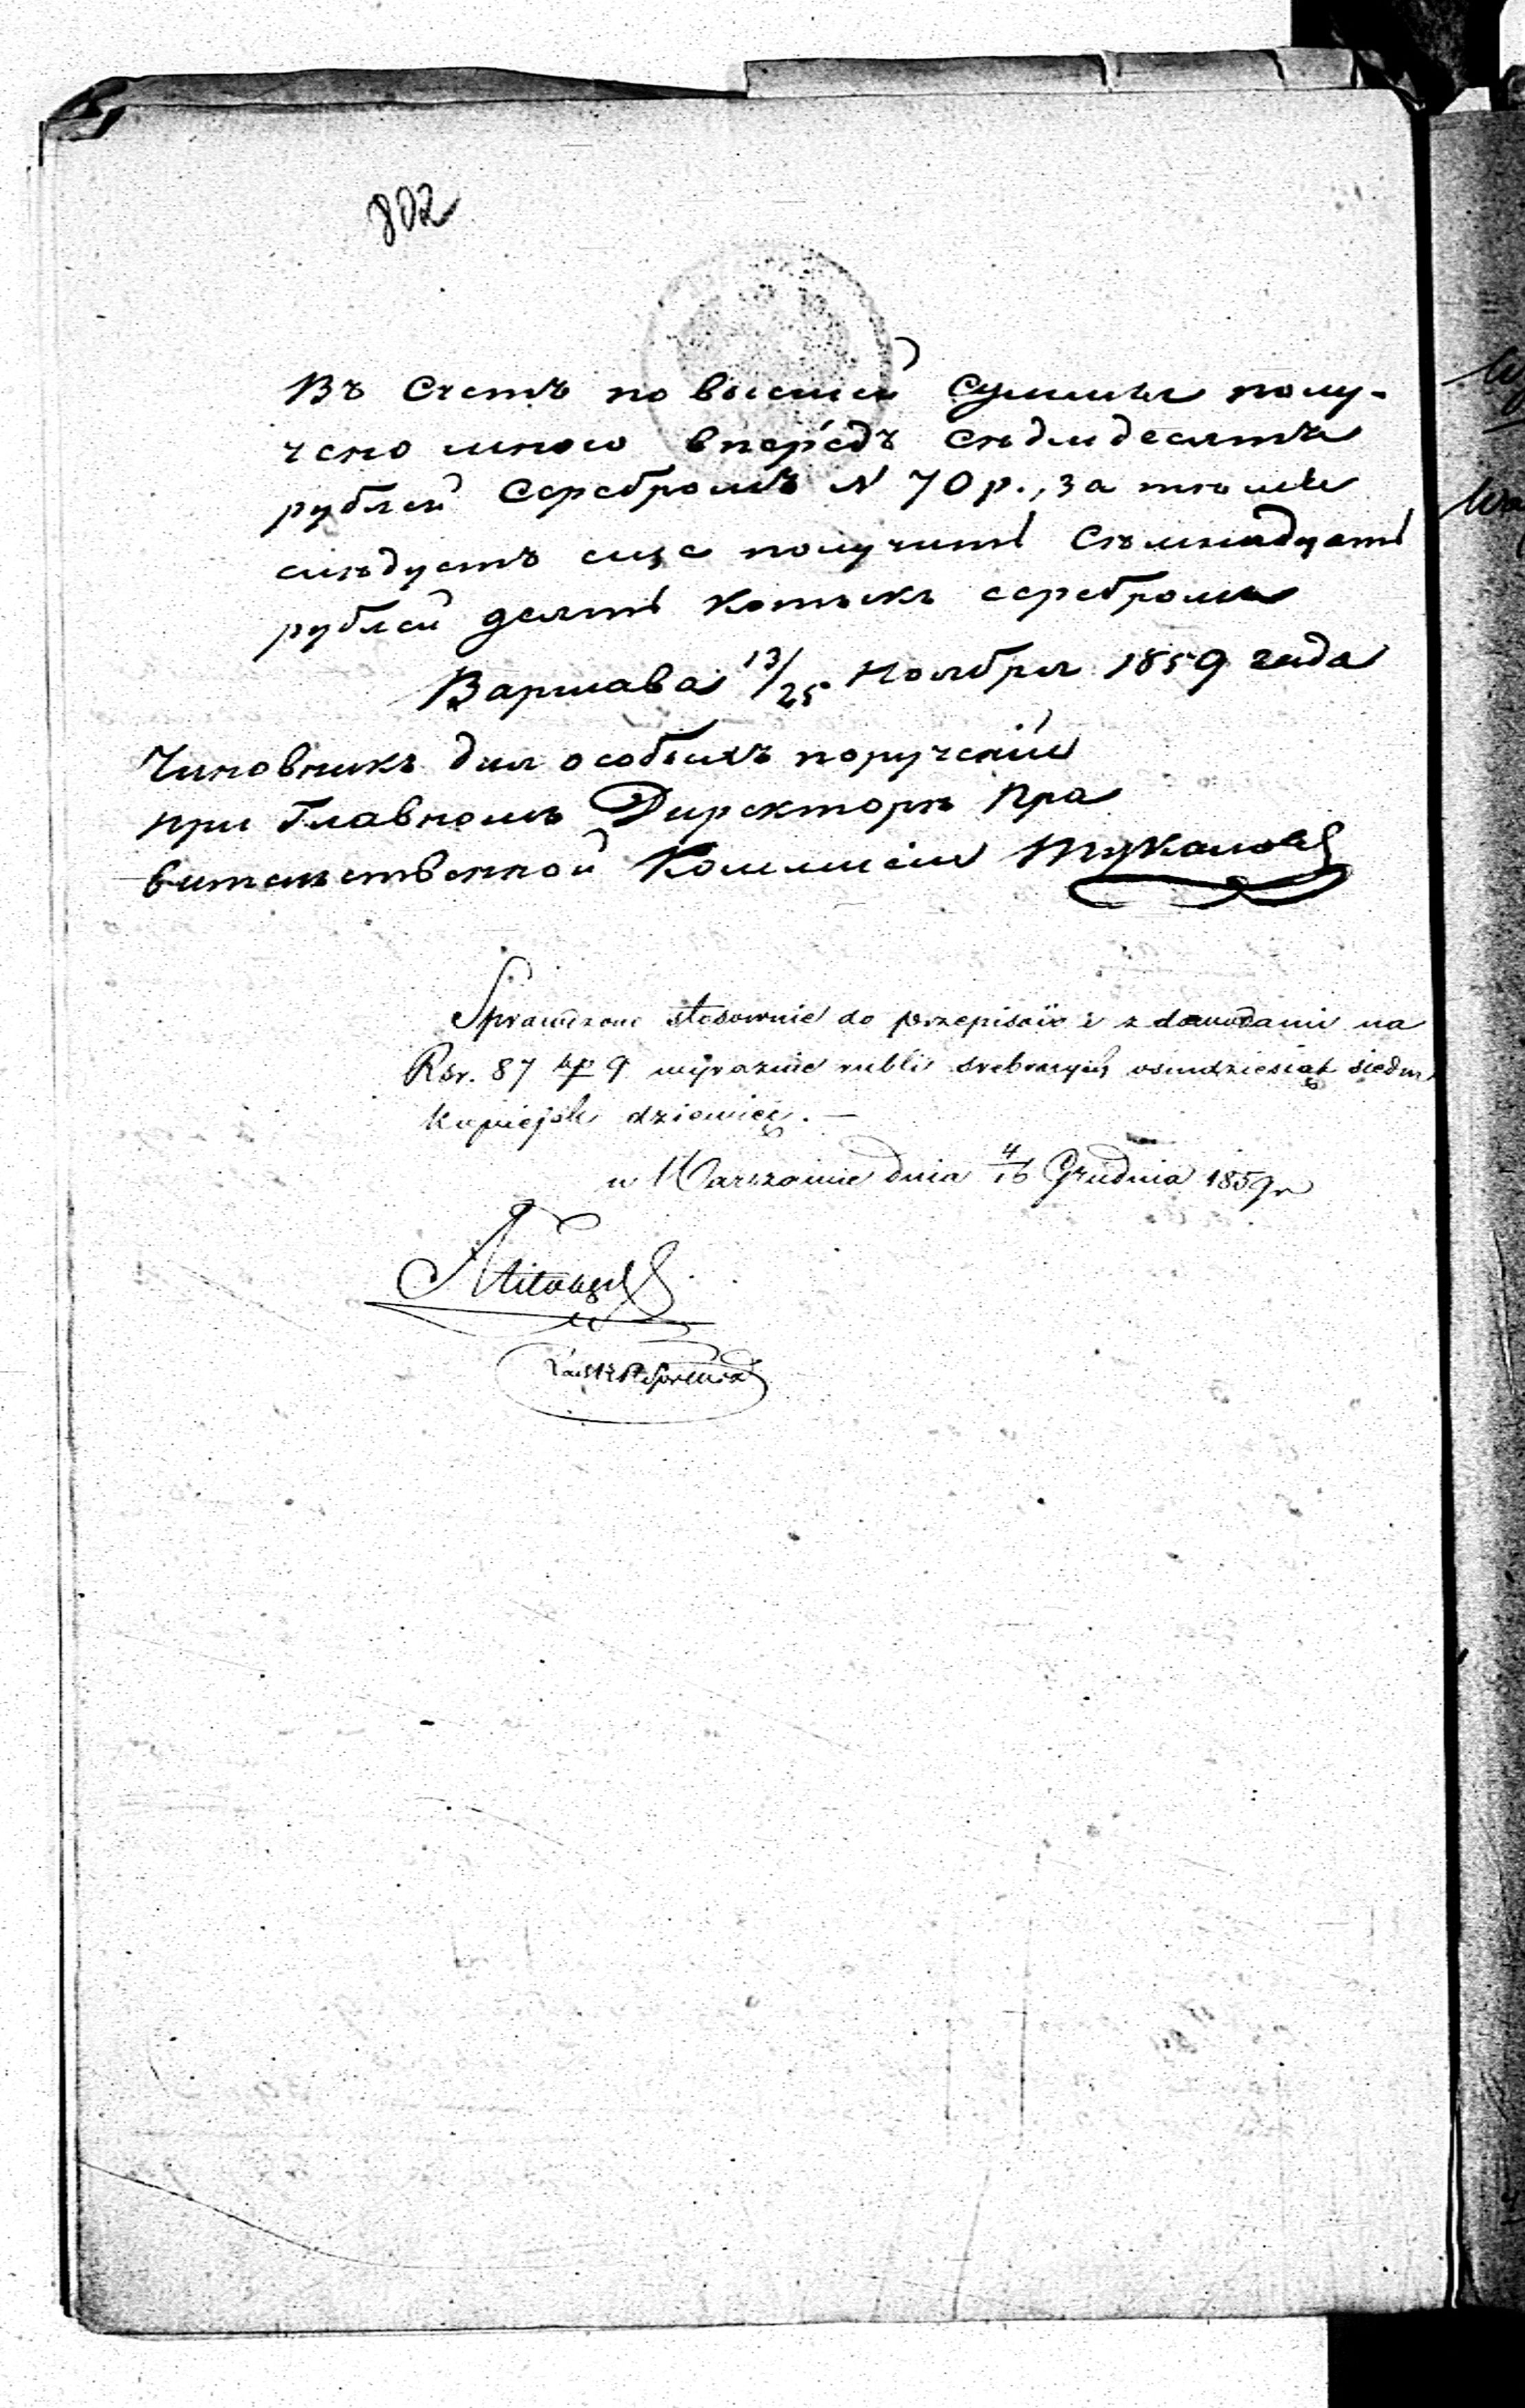 802
Въ Счетъ по высшей Суммы полу-
чено мною впередъ седмдесятъ
рублей Серебромъ N 70 р., за тѣмъ
слѣдуетъ еще получить
рублей девять Копѣекъ серебромъ
Варшава 13/25 Ноября 1859 года
Чиновникъ для особыхъ порученій
при Главномъ Директорѣ Пра
вительственной Коммисіи
Sprawdzono stosownie do przepisów i z dowodami na
Rsr. 87 kp 9 wyraźnie rubli srebrnych ośmdziesiąt siedm
Kopiejek dziewięć. —
w Warszawie dnia 4/16 Grudnia 1859 r